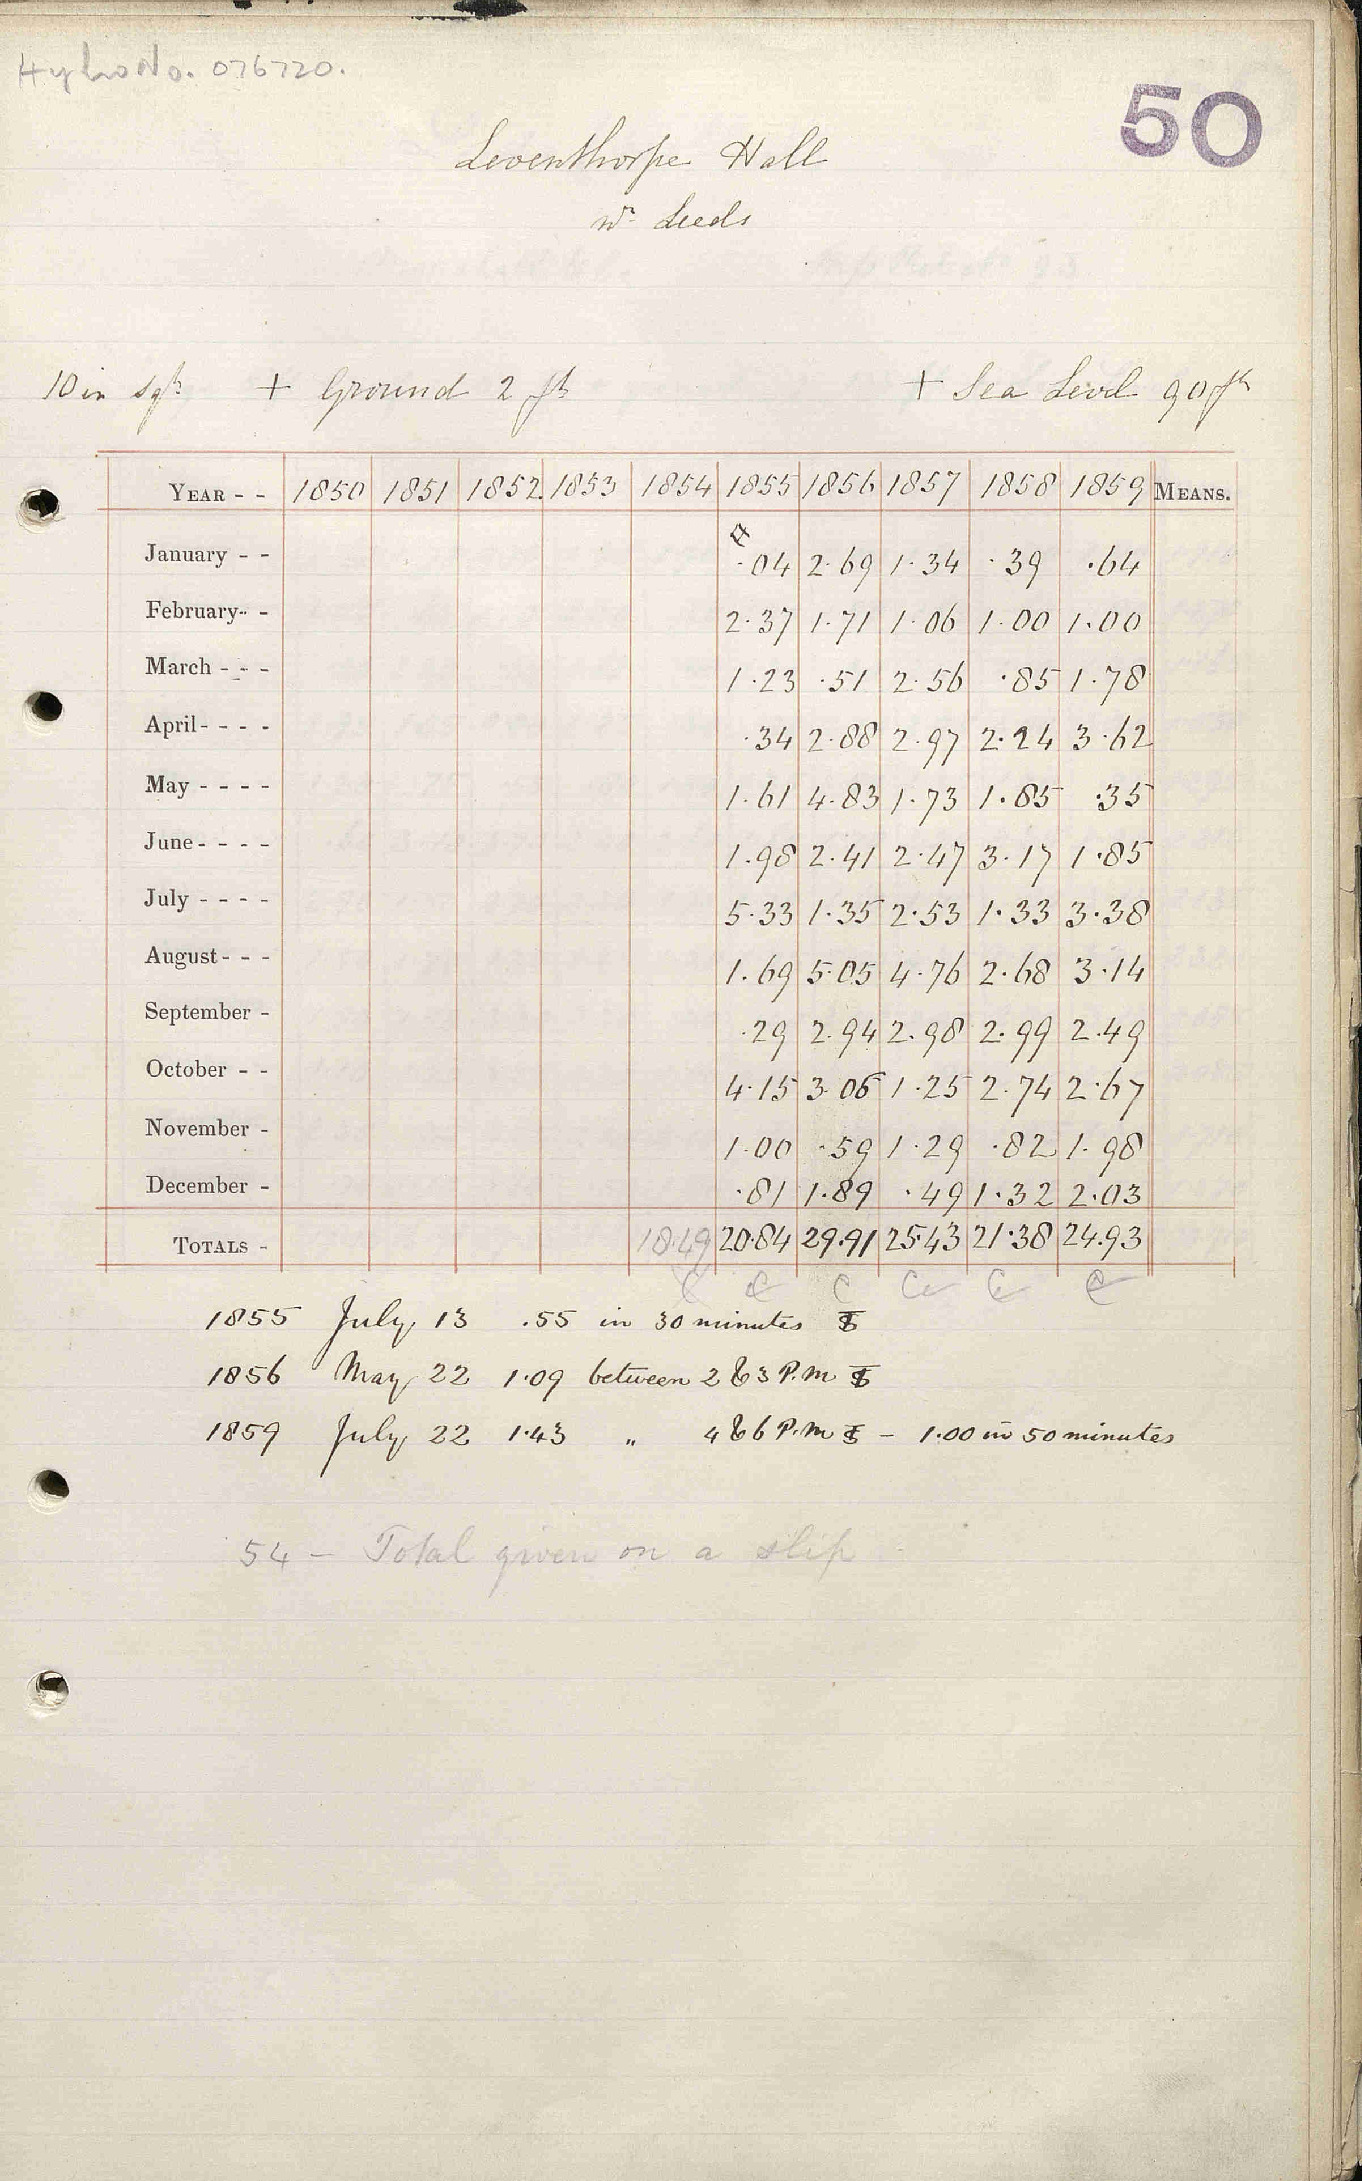 Hydro No. 076720.
50
Leventhorpe Hall
nr Leeds
10 in sqr + Ground 2 ft + Sea Level 90 ft
YEAR - - 1850 1851 1852 1853 1854 1855 1856 1857 1858 1859 MEANS.
January - - .04 2.69 1.34 .39 .64
February - - 2.37 1.71 1.06 1.00 1.00
March - - - 1.23 .51 2.56 .85 1.78
April - - - - .34 2.88 2.97 2.24 3.62
May - - - - 1.61 4.83 1.73 1.85 .35
June - - - - 1.98 2.41 2.47 3.17 1.85
July - - - - 5.33 1.35 2.53 1.33 3.38
August - - - 1.69 5.05 4.76 2.68 3.14
September - .29 2.94 2.98 2.99 2.49
October - - 4.15 3.06 1.25 2.74 2.67
November - 1.00 .59 1.29 .82 1.98
December - .81 1.89 .49 1.32 2.03
TOTALS - 18.49 20.84 29.91 25.43 21.38 24.93
C C C C C C
1855 July 13 .55 in 30 minutes
1856 May 22 1.09 between 2 & 3 P.m
1859 July 22 1.43 " 4 & 6 P.m - 1.00 in 50 minutes
54 - Total given on a slip